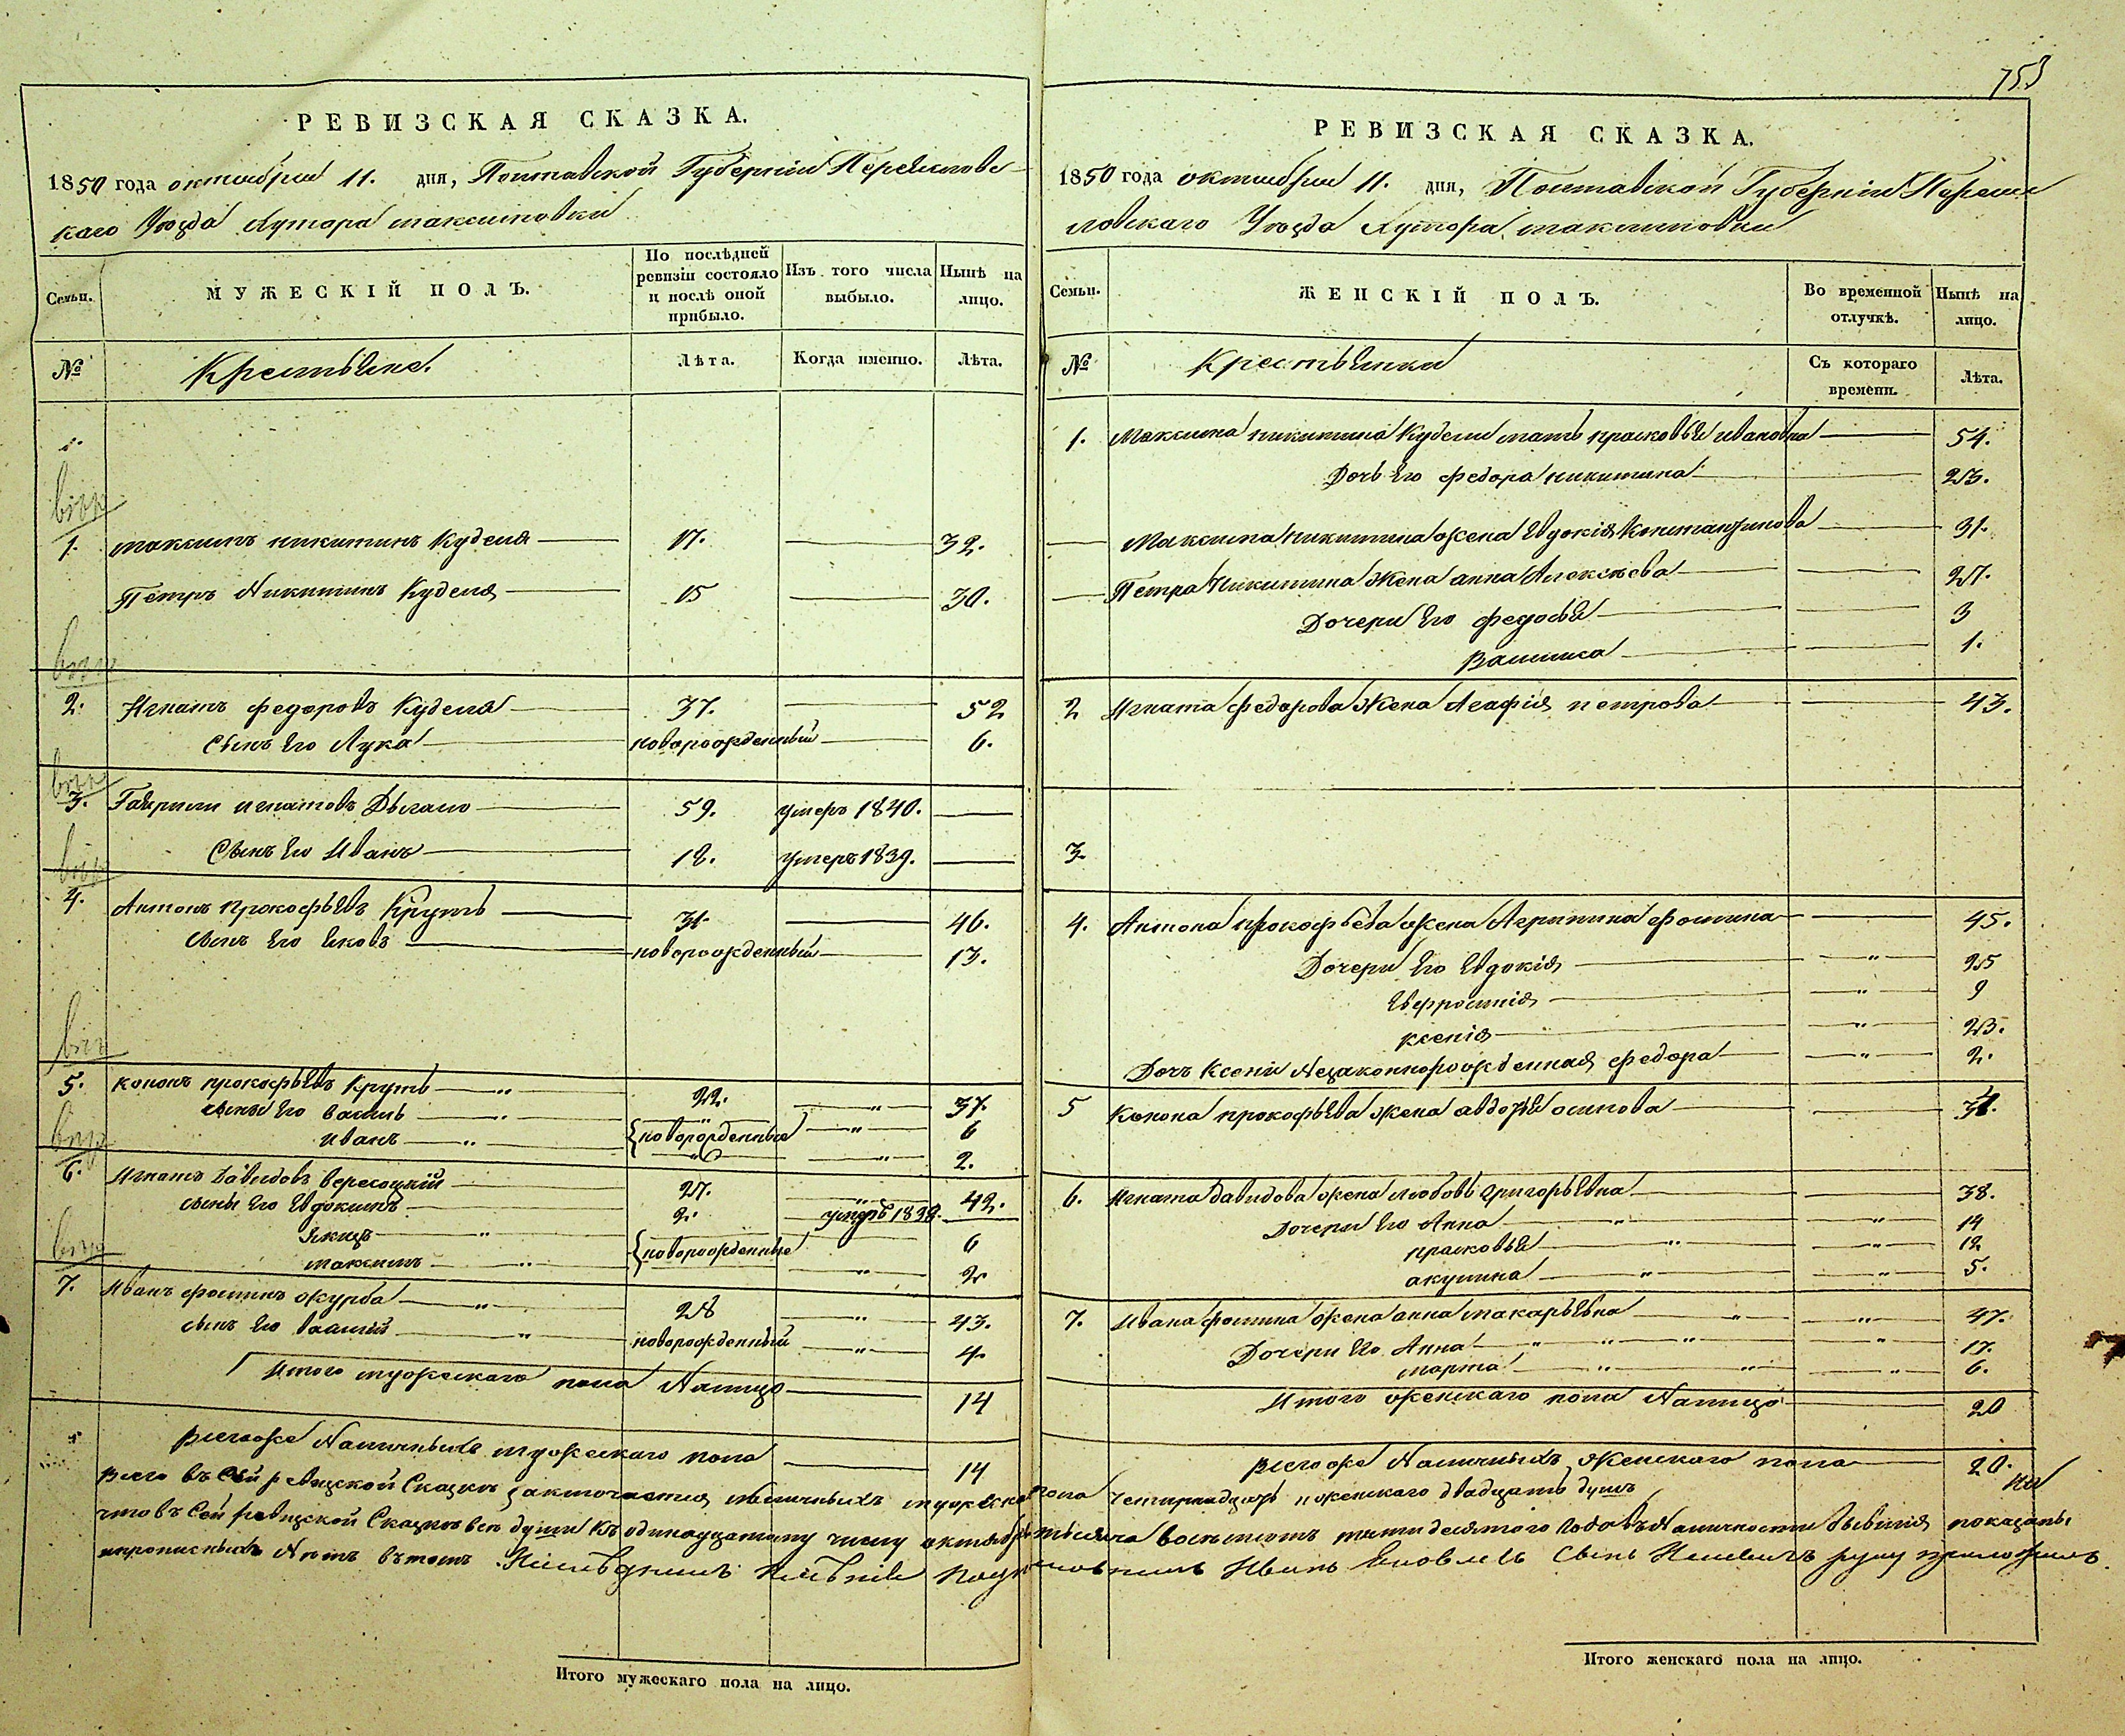 753
РЕВИЗСКАЯ СКАЗКА.
1850 года октября 11. дня, Полтавской Губерніи Переяслове
каго Уѣзда Хутора Максимовки
Семьи. МУЖЕСКІЙ ПОЛЪ. По послѣдней ревизіи состояло и послѣ оной прибыло. Изъ того числа выбыло. Нынѣ на лицо.
№ Крестьяне. Лѣта. Когда именно. Лѣта.
1.
1. Максимъ Никитинъ Куделя 17. 32.
Петръ Никитинъ Куделя 15 30.
2. Игнатъ Федоровъ Куделя 37. 52
Сынъ Его Лука новорожденный 6.
3. Гаврила Игнатовъ 59. умеръ 1840.
Сынъ Его Иванъ 12. умеръ 1839.
4. Антонъ Прокофьевъ Круть 31. 46.
сынъ Его Яковъ новорожденный 13.
5. Кононъ Прокофьевъ Круть 22. 37.
сыны Его Василь 6
Иванъ новорожденные 2.
6. Игнатъ Давидовъ Вересоцкій 27. 42.
сыны Его Евдокимъ 2. умеръ 1838.
6
Максимъ новорожденные 2
7. Иванъ Фоминъ Журба 28 43.
сынъ Его Василій новорожденный 4.
Итого мужескаго пола Налицо 14
Всегоже Наличныхъ мужескаго пола 14
РЕВИЗСКАЯ СКАЗКА.
1850 года октября 11. дня, Полтавской Губерніи Переяс
ловскаго Уѣзда Хутора Максимовки
Семьи. ЖЕНСКІЙ ПОЛЪ. Во временной отлучкѣ. Нынѣ на лицо.
№ Крестьянки Съ котораго времени. Лѣта.
1. Максима Никитина Кудели мать Прасковья Ивановна 54.
Дочь Его Федора Никитина 23.
Максима Никитина жена Евдокія Константинова 31.
Петра Никитина Жена Анна Алексѣева 27.
Дочери Его Федосья 3
1.
2 Игната Федорова Жена Агафія Петрова 43.
3.
4. Антона Прокофьева жена Агрипина Фомина 45.
Дочери Его Евдокія 25
Евфросинія 9
Ксенія 23.
Дочь Ксеніи Незаконнорожденная Федора 2.
5 Конона Прокофьева жена Авдотья Осипова
6. Игната Давидова жена Любовь Григорьевна 38.
Дочери Его Анна 14
Прасковья 12
Акулина 5.
7. Ивана Фомина жена Анна Макарьевна 47.
Дочери Его Анна 17.
Марта 6.
Итого женскаго пола Налицо 20
Всегоже Наличныхъ Женскаго пола 20.
Всего въ Сей ревизской Сказкѣ заключается Наличныхъ мужеска пола четырнадцать и женскаго двадцать душъ
что въ Сей ревизской Сказкѣ всѣ души Къ одинадцатому числу октября тысяча восемьсотъ пятидесятого Года въ Наличности бывшія показаны
и прописныхъ Нѣтъ въ томъ Иванъ Яковлевъ Сынъ руку приложилъ.
Итого мужескаго пола на лицо.
Итого женскаго пола на лицо.